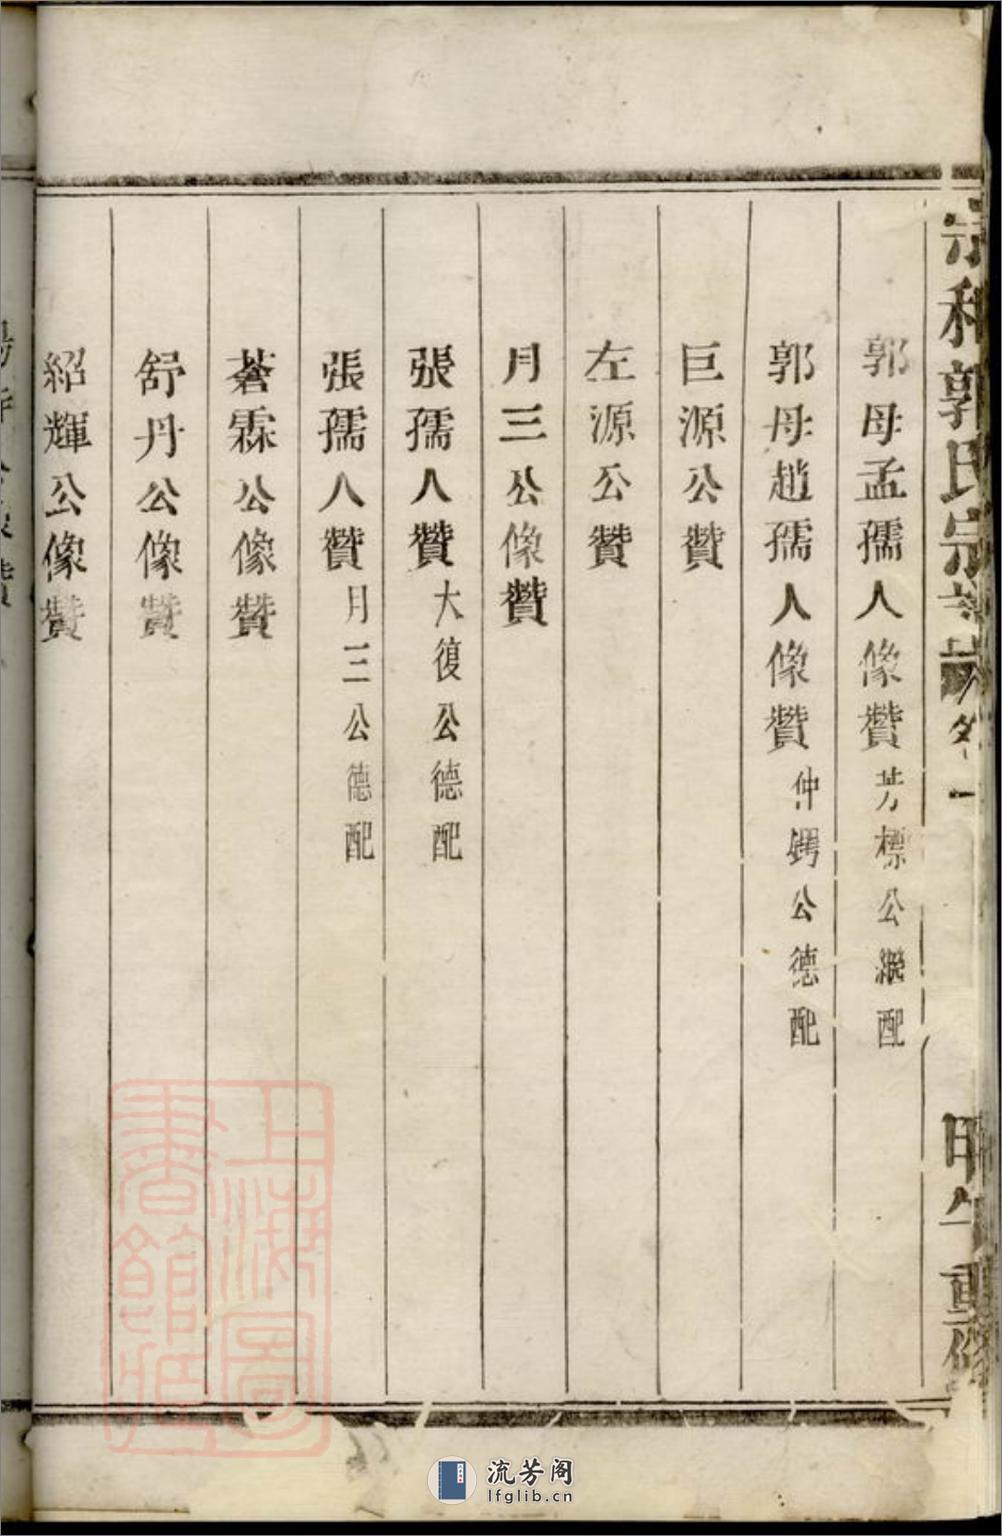 宗和郭氏宗譜 卷一 甲午重修
郭母孟孺人像贊 芳標公繼配
郭母趙孺人像贊 仲鍔公德配
巨源公贊
左源公贊
月三公像贊
張孺人贊 大復公德配
張孺人贊 月三公德配
蒼霖公像贊
舒丹公像贊
紹輝公像贊
上海圖書館藏
流芳阁
lfglib.cn